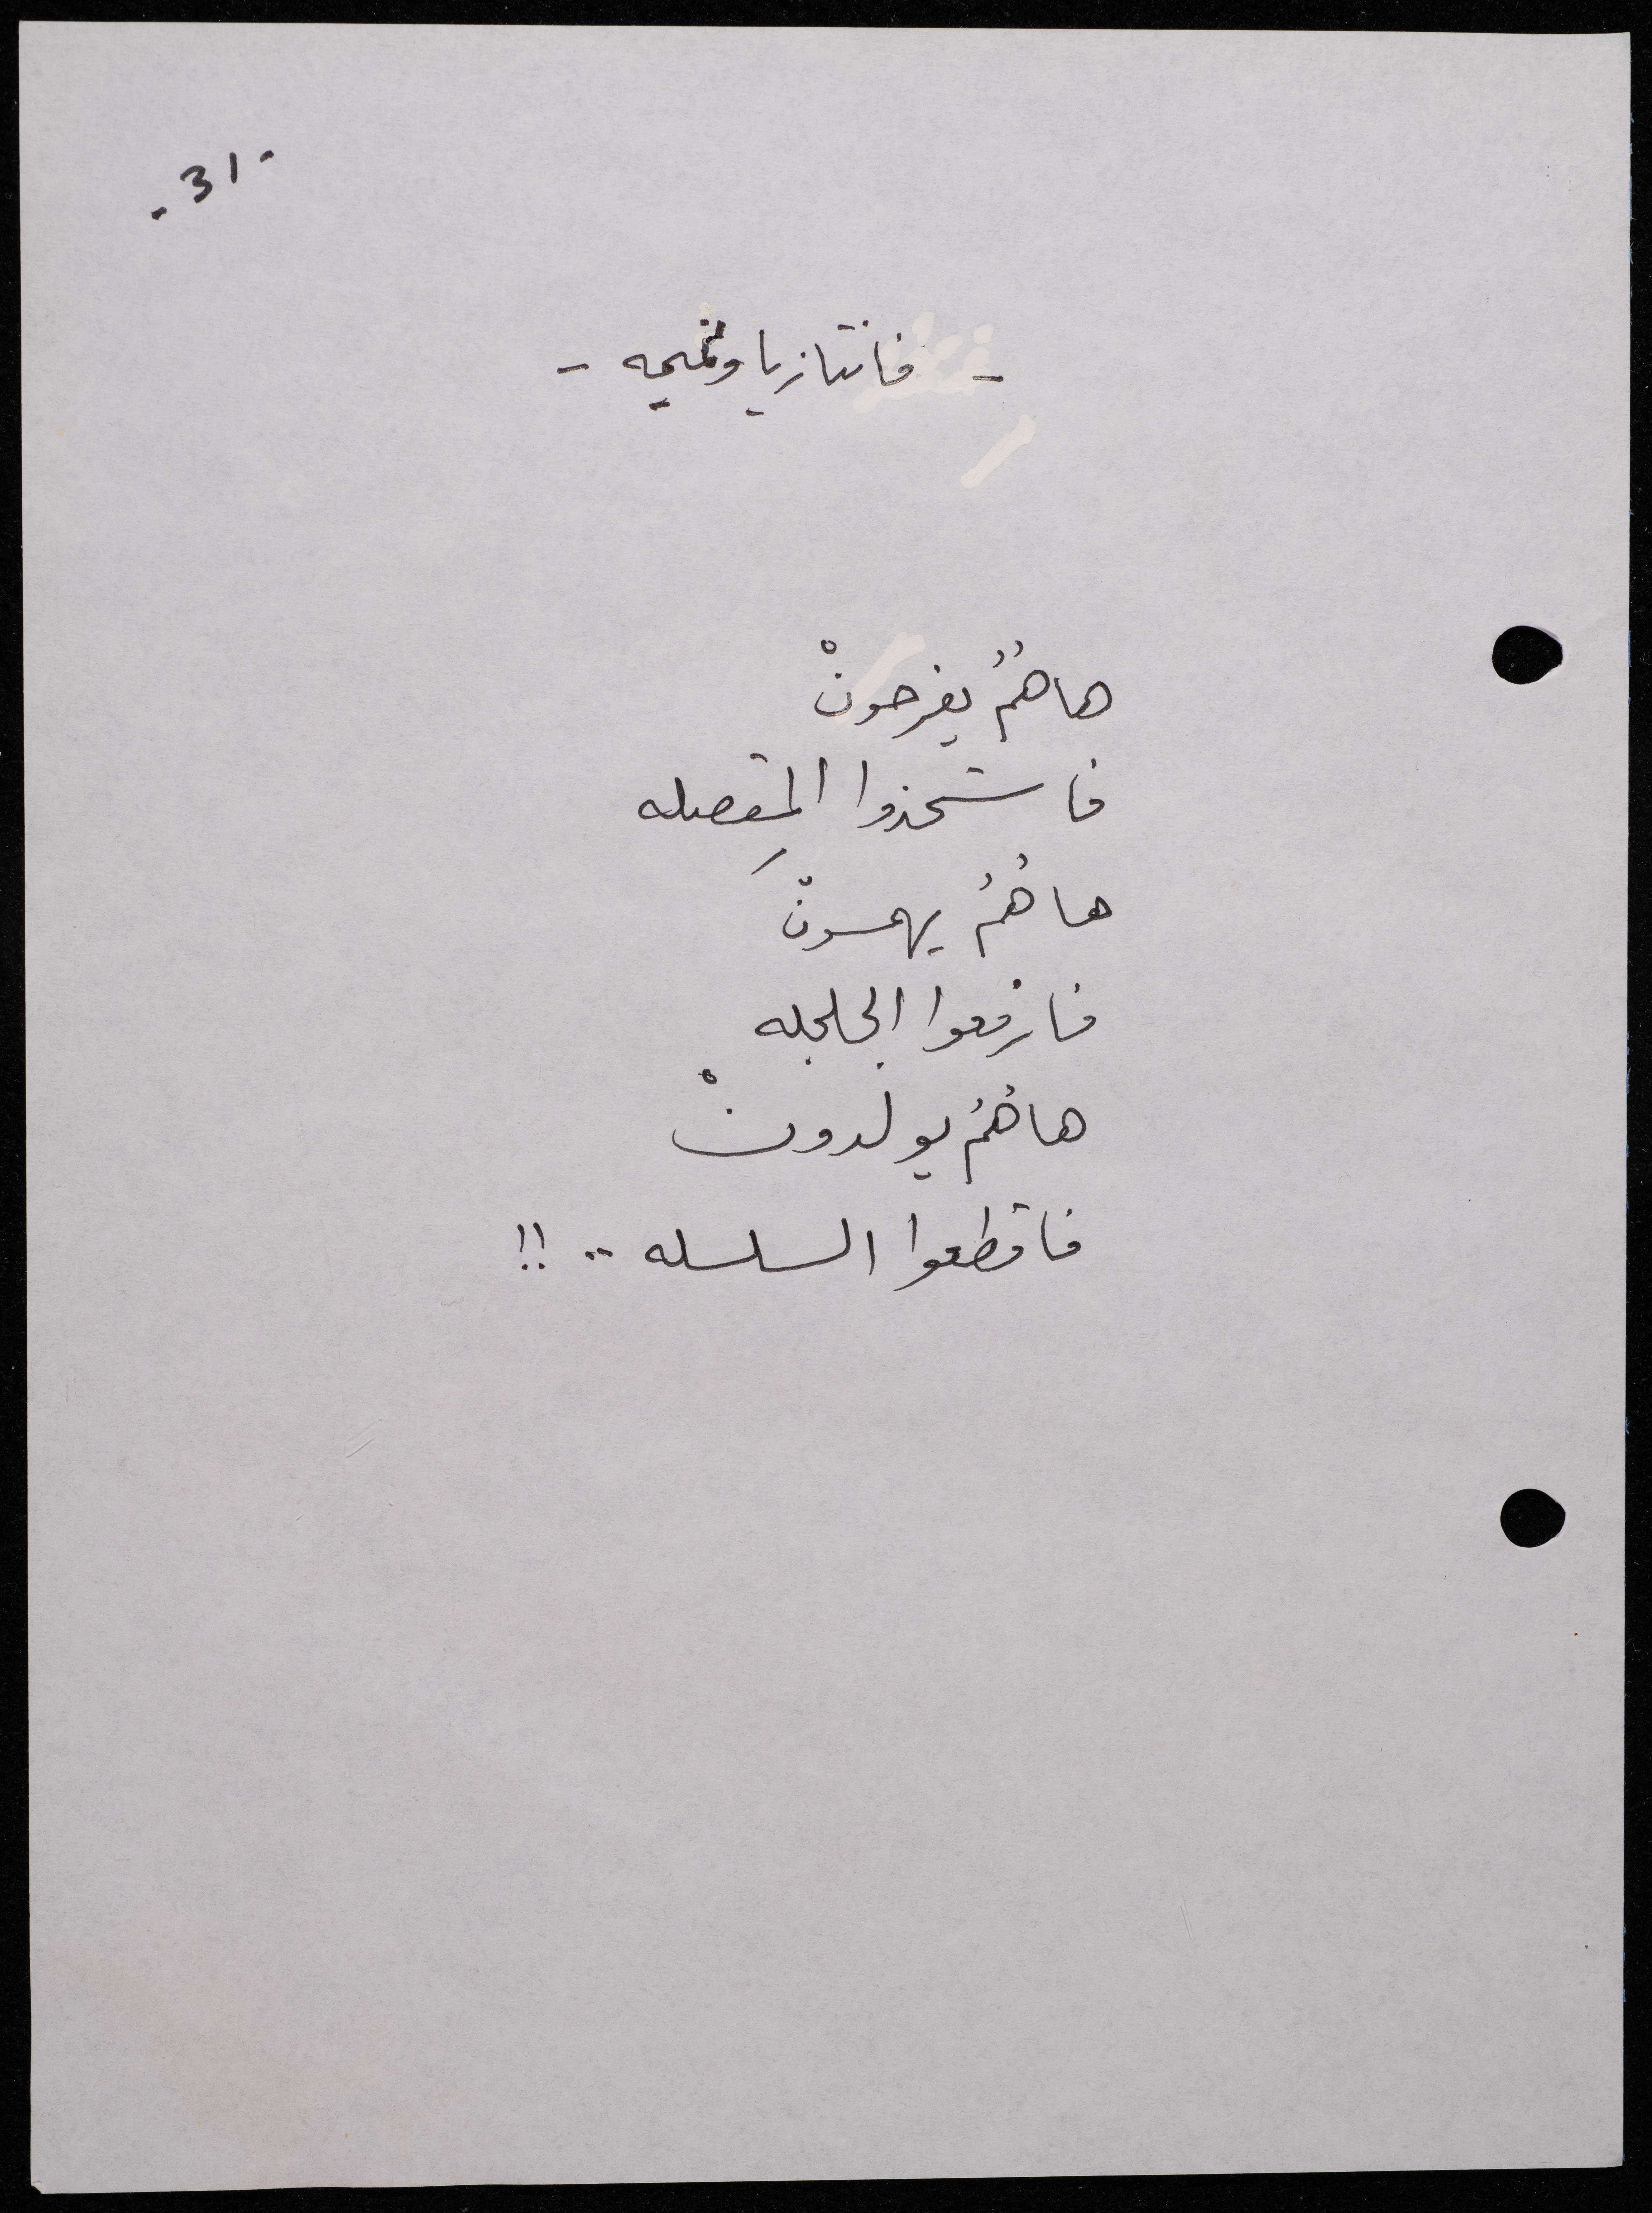 - 31 -
- فانتازيا وقحيه -
هاهُمُ يفرحونْ
فاشحذوا المِقصله
هاهُمُ يهمسونْ
فارفعوا الجلجله
هاهُمُ يولدونْ
فاقطعوا السلسله .. !!